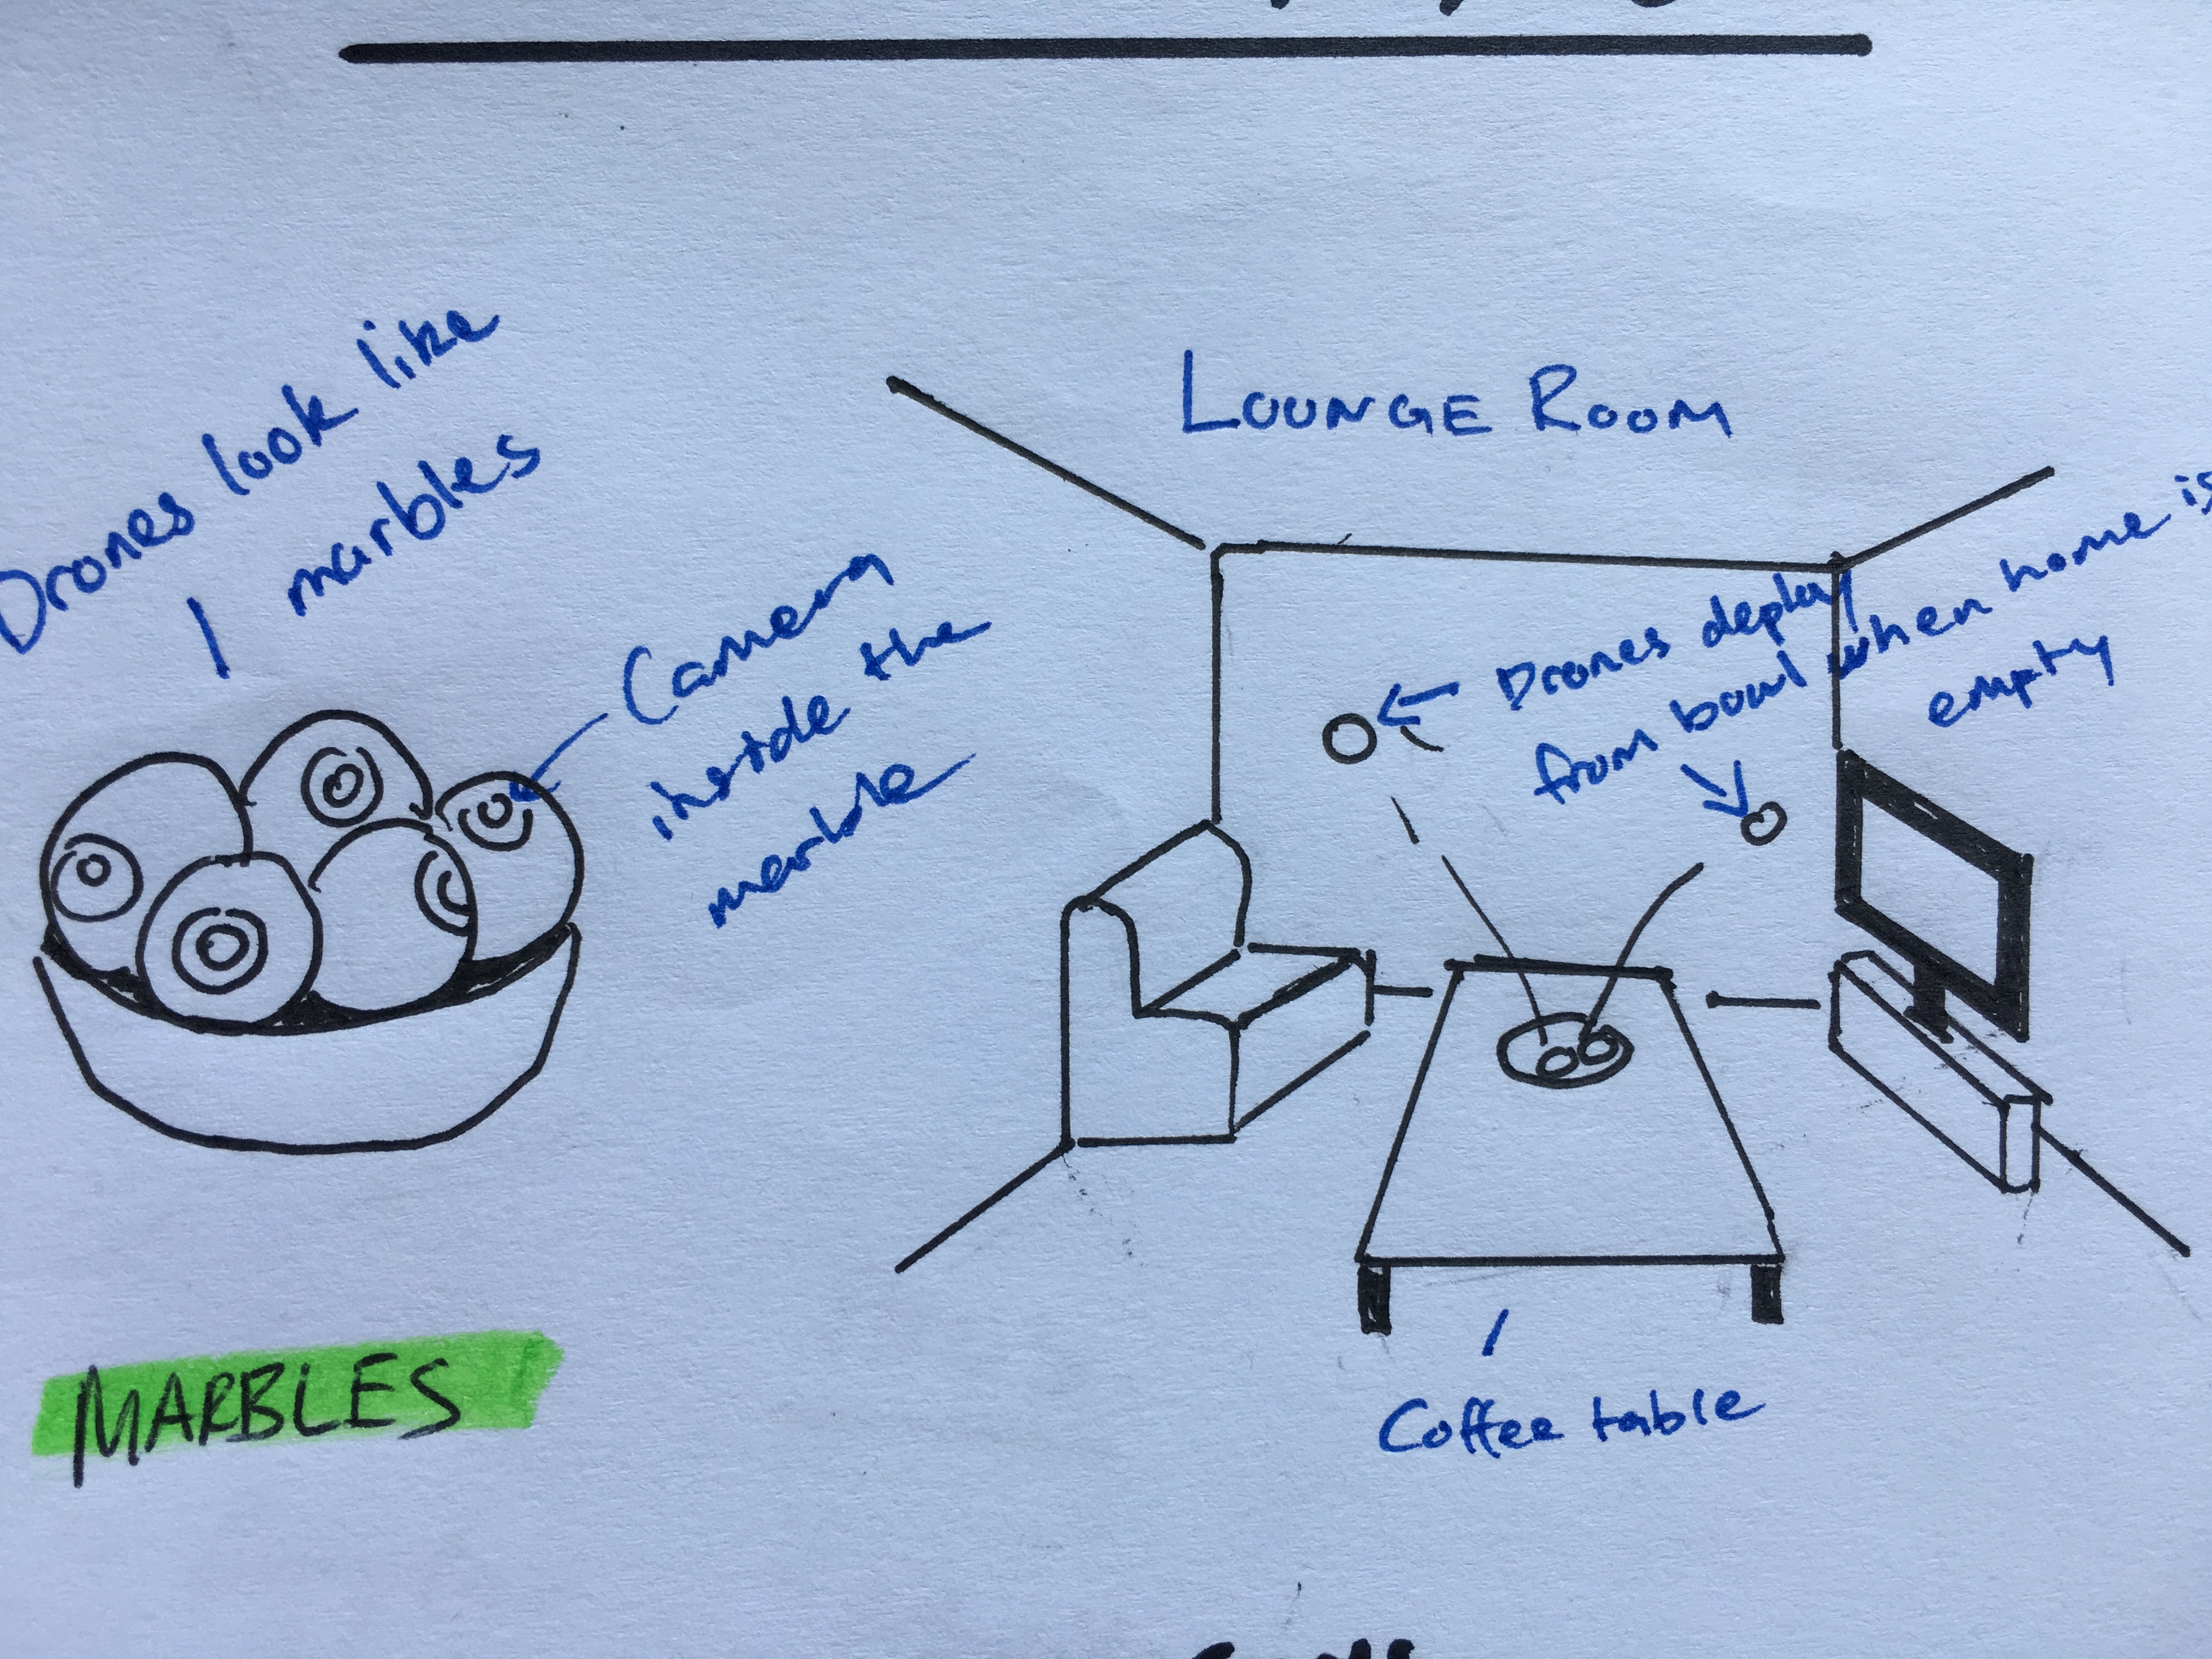 Drones look like
marbles
Camera
inside the
marble
MARBLES
LOUNGE ROOM
Drones deploy
from bowl when home is
empty
Coffee table